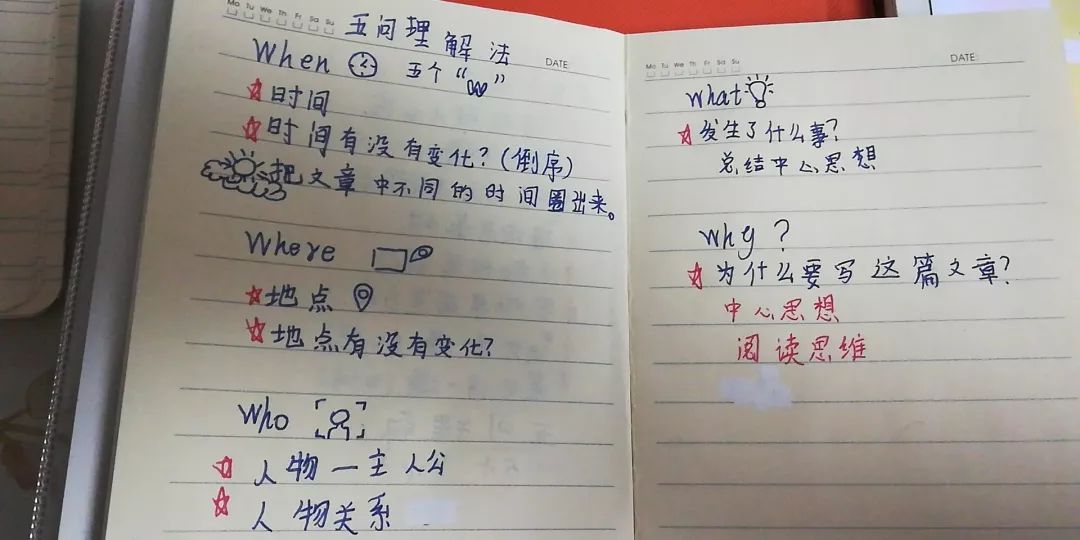 Mo Tu We Th Fr Sa Su
五问理解法
DATE
When 五个“W”
时间
时间有没有变化？(倒序)
把文章中不同的时间圈出来。
Where
地点
地点有没有变化？
Who
人物一主人公
人物关系
Mo Tu We Th Fr Sa Su
DATE
what
发生了什么事？
总结中心思想
why ?
为什么要写这篇文章？
中心思想
阅读思维